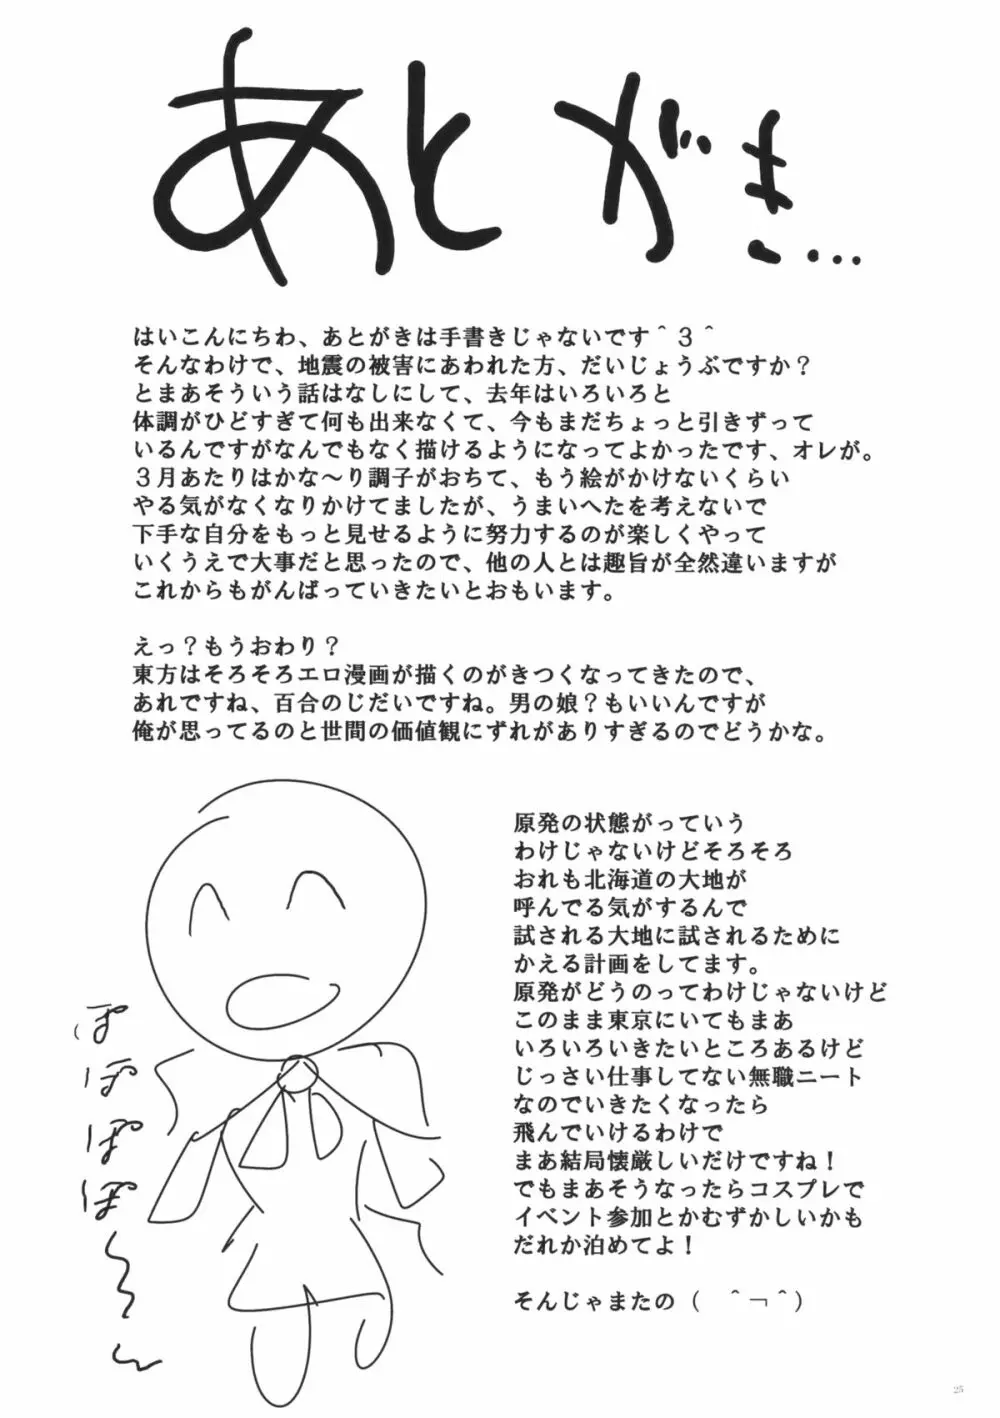 あとがき...
はいこんにちわ、あとがきは手書きじゃないです＾３＾
そんなわけで、地震の被害にあわれた方、だいじょうぶですか？
とまあそういう話はなしにして、去年はいろいろと
体調がひどすぎて何も出来なくて、今もまだちょっと引きずって
いるんですがなんでもなく描けるようになってよかったです、オレが。
３月あたりはかな～り調子がおちて、もう絵がかけないくらい
やる気がなくなりかけてましたが、うまいへたを考えないで
下手な自分をもっと見せるように努力するのが楽しくやって
いくうえで大事だと思ったので、他の人とは趣旨が全然違いますが
これからもがんばっていきたいとおもいます。
えっ？もうおわり？
東方はそろそろエロ漫画が描くのがきつくなってきたので、
あれですね、百合のじだいですね。男の娘？もいいんですが
俺が思ってるのと世間の価値観にずれがありすぎるのでどうかな。
原発の状態がっていう
わけじゃないけどそろそろ
おれも北海道の大地が
呼んでる気がするんで
試される大地に試されるために
かえる計画をしてます。
原発がどうのってわけじゃないけど
このまま東京にいてもまあ
いろいろいきたいところあるけど
じっさい仕事してない無職ニート
なのでいきたくなったら
飛んでいけるわけで
まあ結局懐厳しいだけですね！
でもまあそうなったらコスプレで
イベント参加とかむずかしいかも
だれか泊めてよ！
そんじゃまたの（　＾￢＾）
ぽぽぽぽ～～ん
25